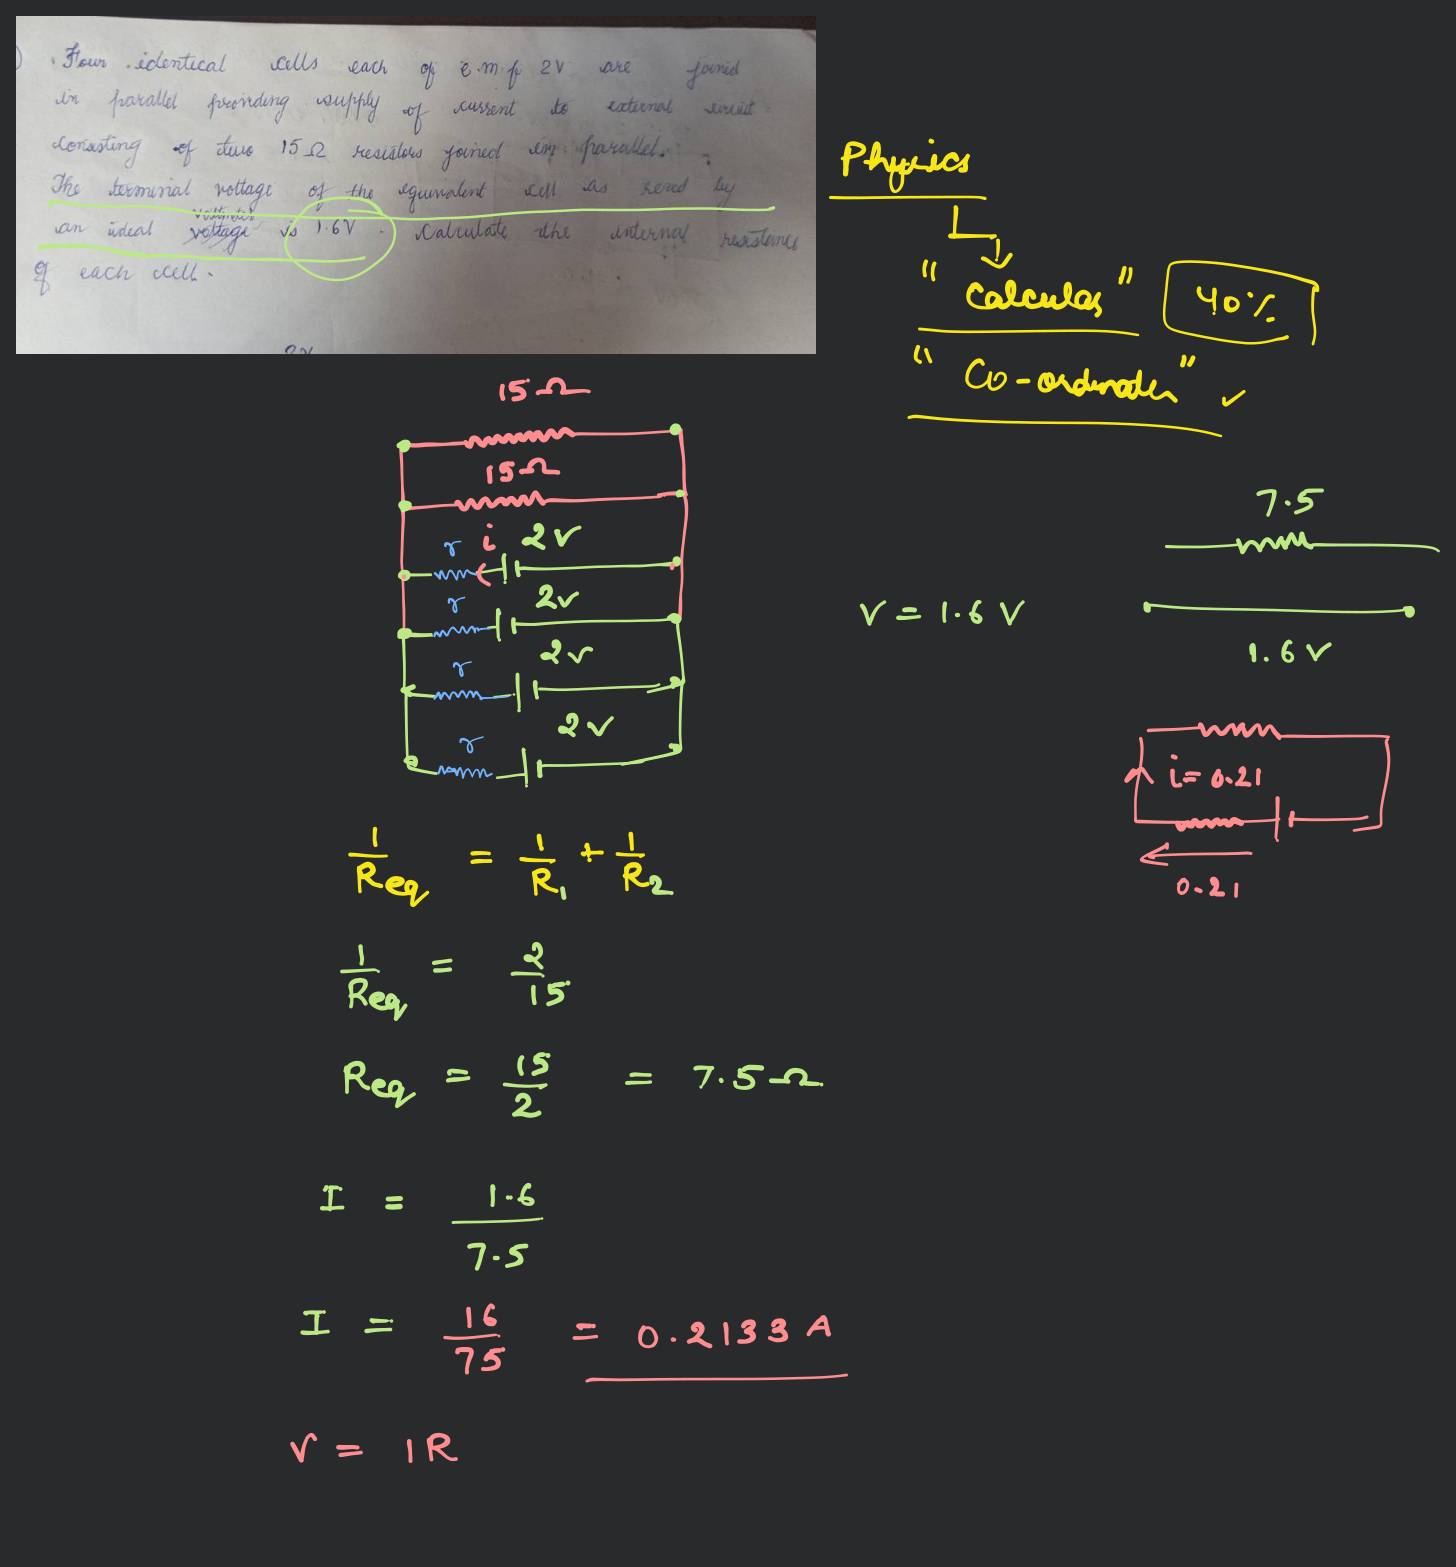 Four identical cells each of e.m.f 2V are joined
in parallel providing supply of current to external circuit
consisting of two 15Ω resistors joined in parallel.
The terminal voltage of the equivalent cell as read by
voltmeter
an ideal voltage is 1.6V. Calculate the internal resistance
of each cell.
2V
Physics
"Calculas" 40%
"Co-ordinates" ✓
15Ω
15Ω
i 2V
r
r 2V
r 2V
r 2V
7.5
V = 1.6 V
1.6 V
i = 0.21
0.21
1/Req = 1/R1 + 1/R2
1/Req = 2/15
Req = 15/2 = 7.5Ω
I = 1.6/7.5
I = 16/75 = 0.2133 A
V = IR